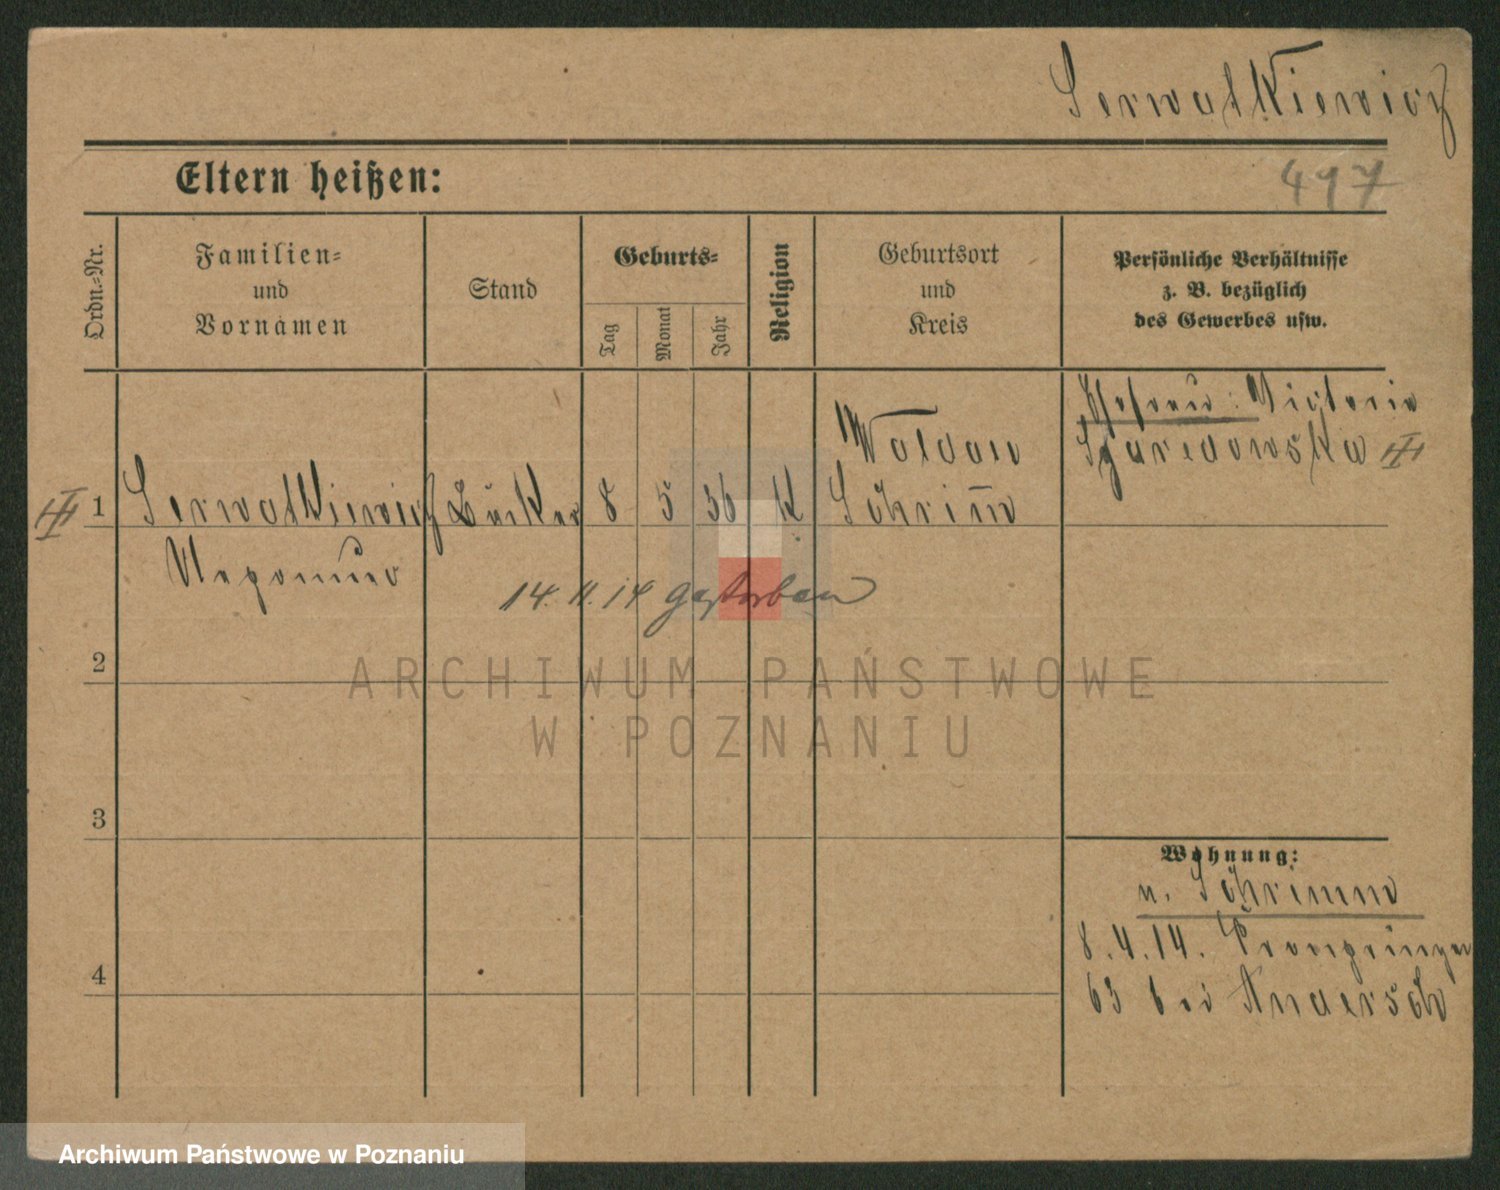 Serwatkiewicz
Eltern heißen:
497
Ordn.-Nr.
Familien-
und
Vornamen
Stand
Geburts-
Tag
Monat
Jahr
Religion
Geburtsort
und
Kreis
Persönliche Verhältnisse
z. B. bezüglich
des Gewerbes usw.
Ehefrau: Victoria
1 Serwatkiewicz
8 5 36 K
Schrimm
14. 11. 14 gestorben
ARCHIWUM PAŃSTWOWE
W POZNANIU
2
3
4
Wohnung:
n. Schrimm
8.4.14. Kronprinzen
63 bei Andersch
Archiwum Państwowe w Poznaniu